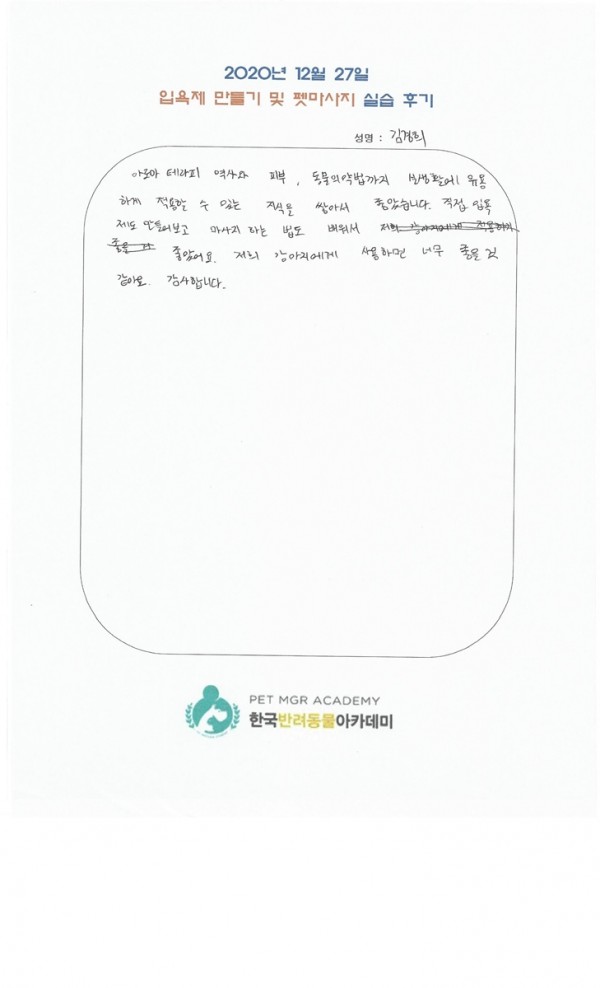 2020년 12월 27일
입욕제 만들기 및 펫마사지 실습 후기
성명 : 김경희
아로마 테라피 역사와 피부, 동물의약법까지 실생활에 유용
하게 적용할 수 있는 지식을 쌓아서 좋았습니다. 직접 입욕
제도 만들어보고 마사지 하는 법도 배워서 저희 강아지에게 적용하기
좋을 거 좋았어요. 저희 강아지에게 사용하면 너무 좋을 것
같아요. 감사합니다.
PET MGR ACADEMY
한국반려동물아카데미